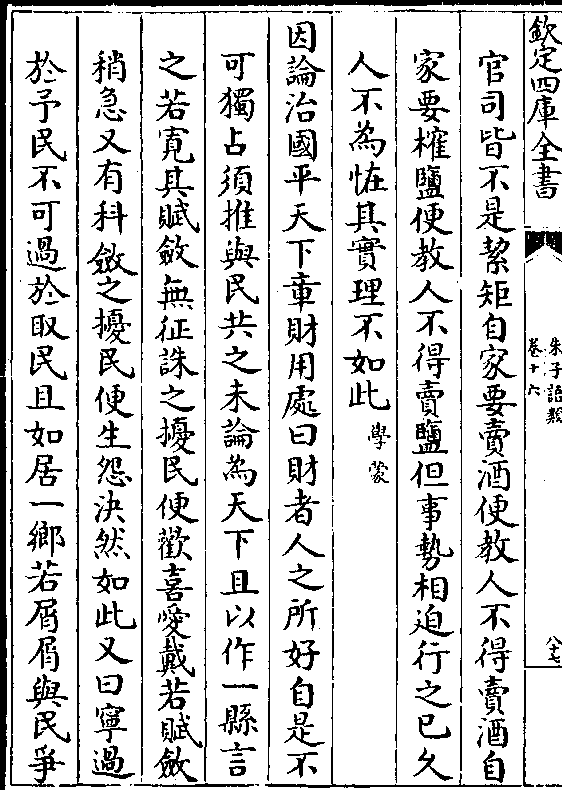 欽定四庫全書
朱子語類
卷十六
八十七
官司皆不是絜矩自家要賣酒便教人不得賣酒自
家要榷鹽便教人不得賣鹽但事勢相迫行之已久
人不為恠其實理不如此學蒙
因論治國平天下章財用處曰財者人之所好自是不
可獨占須推與民共之未論為天下且以作一縣言
之若寛其賦斂無征誅之擾民便歡喜愛戴若賦斂
稍急又有科斂之擾民便生怨決然如此又曰寧過
於予民不可過於取民且如居一鄉若屑屑與民爭